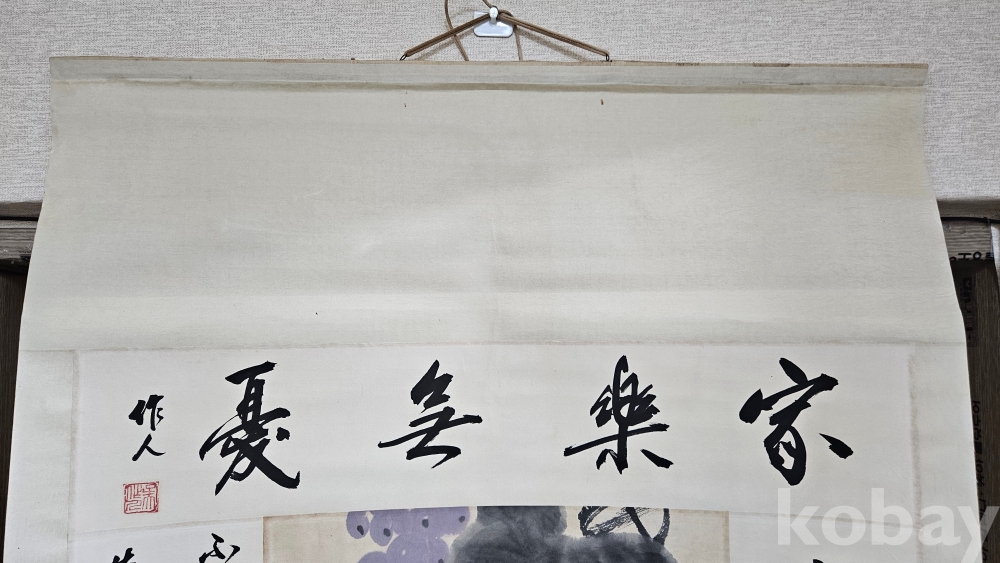 家樂無憂
作人
不
kobay